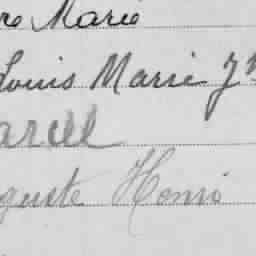 re Marie
Louis Marie J
arcel
guste Henri